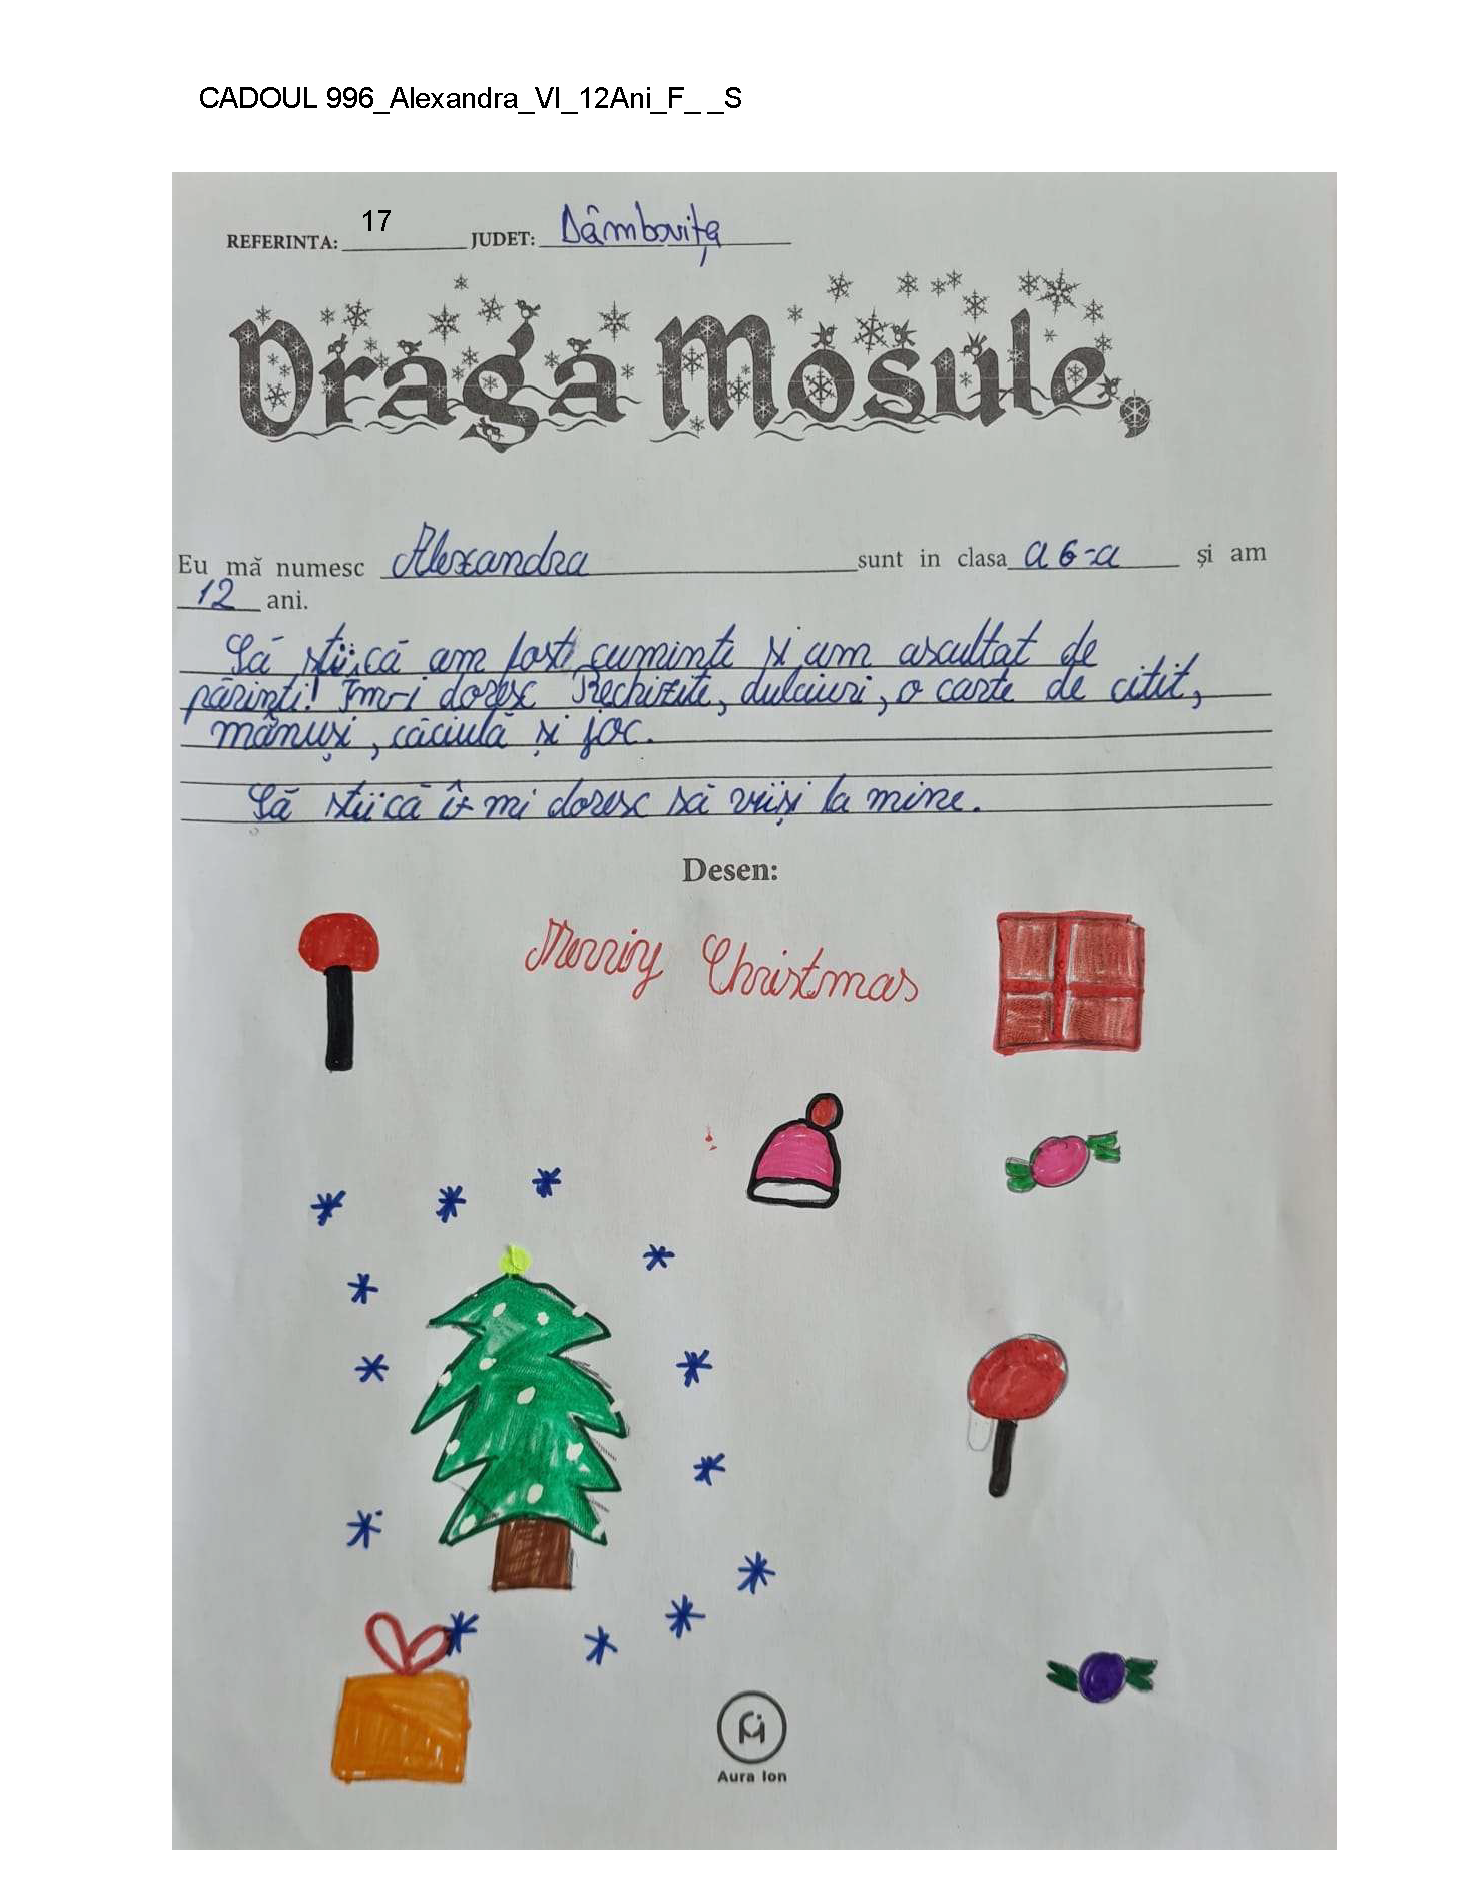 CADOUL 996_Alexandra_VI_12Ani_F_ _S
REFERINTA: 17 JUDET: Dâmbovița
Draga Mosule,
Eu mă numesc Alexandra sunt in clasa a 6-a și am
12 ani.
Să știi că am fost cuminte și am ascultat de
părinți! Îmi doresc Rechizite, dulciuri, o carte de citit,
mănuși, căciulă și joc.
Să știi că îmi doresc să vii și la mine.
Desen:
Merriy Christmas
Aura Ion